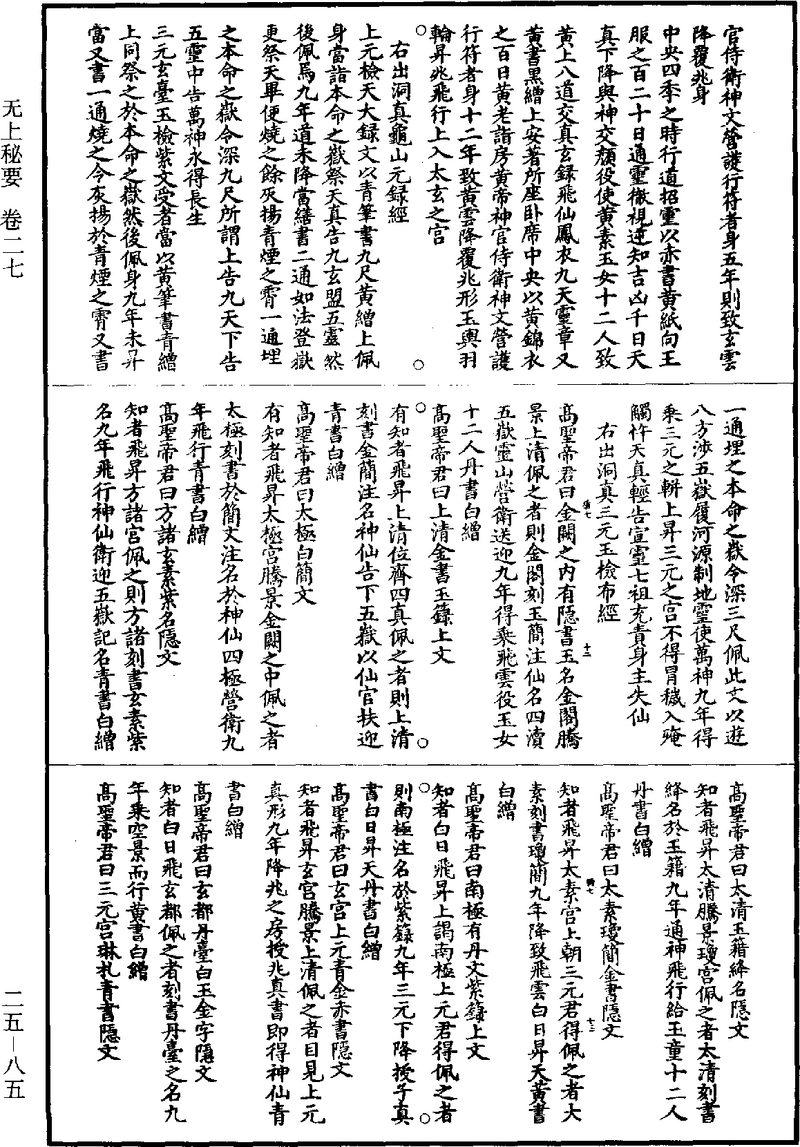 官侍衛神文營護行符者身五年則致玄雲
降覆兆身
中央四季之時行道招靈以赤書黃紙向王
服之百二十日通靈徹視逆知吉凶千日天
真下降與神交顏役使黃素玉女十二人致
黃上八道交真玄錄飛仙鳳衣九天靈章又
黃書黑繒上安著所座卧席中央以黃錦衣
之百日黃老詣房黃帝神官侍衛神文營護
行符者身十二年致黃雲降覆兆形玉輿羽
輪昇兆飛行上入太玄之宮
右出洞真龜山元録經
上元檢天大録文以青筆書九尺黃繒上佩
身當詣本命之嶽祭天真告九玄盟五靈然
後佩焉九年道未降當繕書二通如法登嶽
更祭天畢便燒之餘灰揚青煙之霄一通埋
之本命之嶽令深九尺所謂上告九天下告
五靈中告萬神永得長生
三元玄臺玉檢紫文受者當以黃筆書青繒
上同祭之於本命之嶽然後佩身九年未昇
當又書一通燒之令灰揚於青煙之霄又書
一通埋之本命之嶽令深三尺佩此文以遊
八方涉五嶽履河源制地靈使萬神九年得
乘三元之軿上昇三元之宮不得冒穢入殗
觸忤天真輕告宣靈七祖充責身主失仙
右出洞真三元玉檢布經
高聖帝君曰金闕之内有隱書玉名金閣騰
景上清佩之者則金閣刻玉簡注仙名四瀆
五嶽靈山營衛送迎九年得乘飛雲役玉女
十二人丹書白繒
高聖帝君曰上清金書玉籙上文
有知者飛昇上清位齊四真佩之者則上清
刻書金簡注名神仙告下五嶽以仙官扶迎
青書白繒
高聖帝君曰太極白簡文
有知者飛昇太極宮騰景金闕之中佩之者
太極刻書於簡文注名於神仙四極營衛九
年飛行青書白繒
高聖帝君曰方諸玄素紫名隱文
知者飛昇方諸宮佩之則方諸刻書玄素紫
名九年飛行神仙衛迎五嶽記名青書白繒
高聖帝君曰太清玉籍絳名隱文
知者飛昇太清騰景瓊宮佩之者太清刻書
絳名於玉籍九年通神飛行給玉童十二人
丹書白繒
高聖帝君曰太素瓊簡金書隱文
知者飛昇太素宮上朝三元君得佩之者太
素刻書瓊簡九年降致飛雲白日昇天黃書
白繒
高聖帝君曰南極有丹文紫籙上文
知者白日飛昇上謁南極上元君得佩之者
則南極注名於紫籙九年三元下降授子真
書白日昇天丹書白繒
高聖帝君曰玄宮上元青金赤書隱文
知者飛昇玄宮騰景上清佩之者目見上元
真形九年降兆之房授兆真書即得神仙青
書白繒
高聖帝君曰玄都丹臺白玉金字隱文
知者白日飛玄都佩之者刻書丹臺之名九
年乘空景而行黃書白繒
高聖帝君曰三元宮琳札青書隱文
无上秘要 卷二七
二五－八五